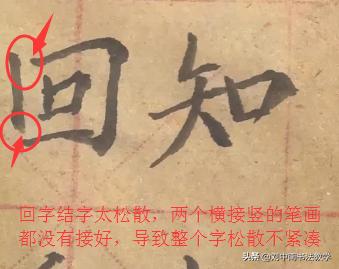 回知
回字结字太松散，两个横接竖的笔画
都没有接好，导致整个字松散不紧凑
头条 @刘中良书法教学